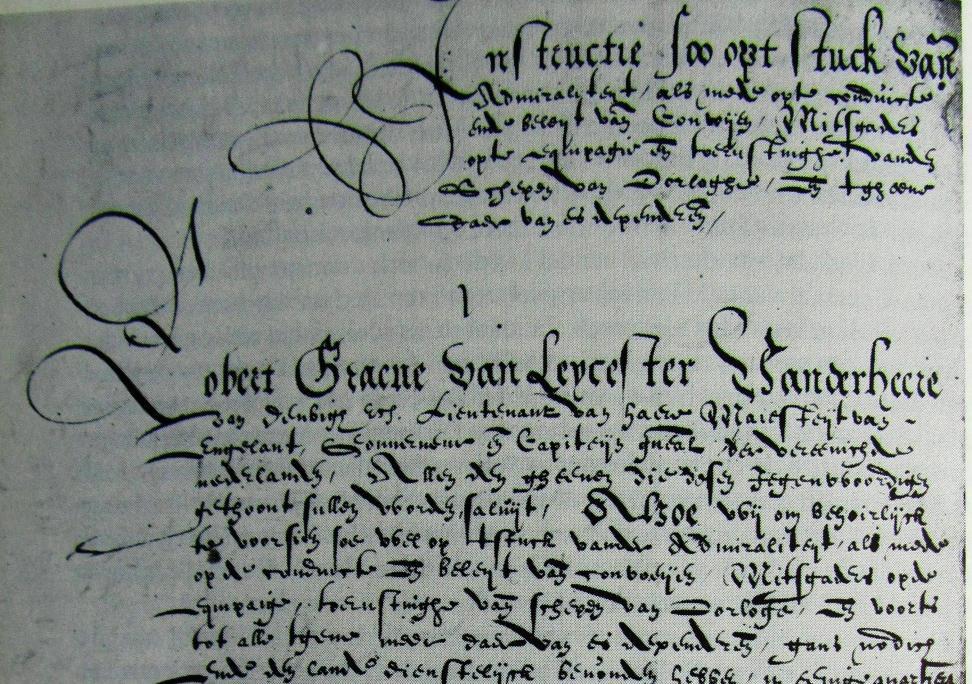 Instructie soo opt stuck van
Admiraliteyt, als mede opte conduicte
ende beleyt van Convoyen, Mitsgaders
opte equipagie en toerustinghe vande
Schepen van Oorloghe, en tgheene
daer van es dependeren,
1
Robert Graeue van Leycester Vanderheere
van Denbigh etc. Lieutenant van haere Maiesteyt van
Engelant, Gouverneur en Capiteyn gnael der vereenichde
nederlanden, Allen den gheenen die desen Jegenvvoordigen
gethoont sullen vvorden, saluyt, Alzoe vvy om behoirlyck
te voorsien soe vvel op tstuck vander Admiraliteyt, als mede
op de conducte en beleyt van convoeyen, Mitsgaders op de
equipaige, toerustinghe van schepen van Oorloge, en voorts
tot alle tgene meer daer van es dependeren, gans nodich
ende den lande dienstelyck bevonden hebben,